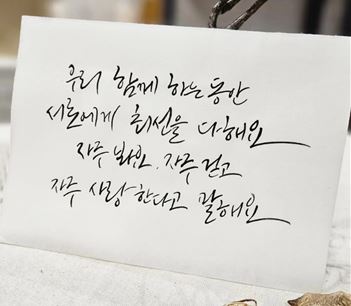 우리 함께 하는 동안
서로에게 최선을 다해요
자주 봐요. 자주 걷고
자주 사랑한다고 말해요